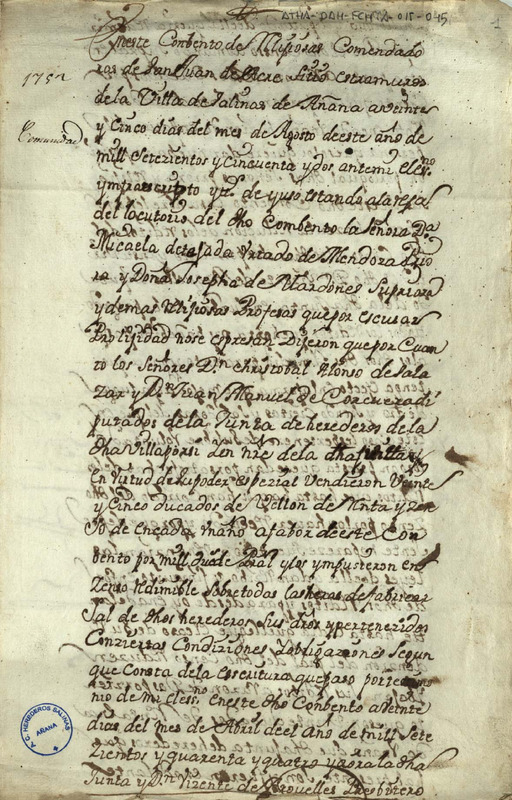 ATHA-DAH-FCHPA-015-045
1
Eneste Conbento de Relijiosas Comendado
ras de San Juan de Acre sitto estramuros
1752
de la Villa de Salinas de Añana aveinte
y Cinco dias del mes de Agosto deeste año de
Comunidad
mill Setezientos y cincuenta y dos antemi el ess.no
ymfraescripto y tt.os de yuso estando ala rexa
del locutorio del dho Combento la Señora D.a
Micaela de Urtado de Mendoza Prio
ra y Doña Josepha de Mardones Supriora
y demas Relijiosas Profesas que por escusar
Prolijidad nose espresan Dijeron que por Cuan
to los Señores D.n Christobal Alonso de Sala
zar y D.n Juan Manuel de Corcuera di
putados de la Junta de herederos de la
dha Villa porsi y en nre de la dha Junta y
En Virtud de su poder espezial Vendieron Veinte
y Cinco ducados de Vellon de Renta y zen
so de encada un año afabor de este Con
bento por mill du.s de Pral y los ympusieron en
Zenso Redimible sobre todas las heras de fabricar
Sal de dhos herederos sus dros y pertenezidos
Conziertas Condiziones y obligaziones segun
que Consta de la escritura que paso por testimo
nio de mi el ess.no en este dho Conbento a Veinte
dias del mes de Abril de el año de mill Sete
zientos y quarenta y quatro y aora la dha
Junta y D.n Vizente de Presbitero
P.G. HEREDEROS SALINAS
AÑANA